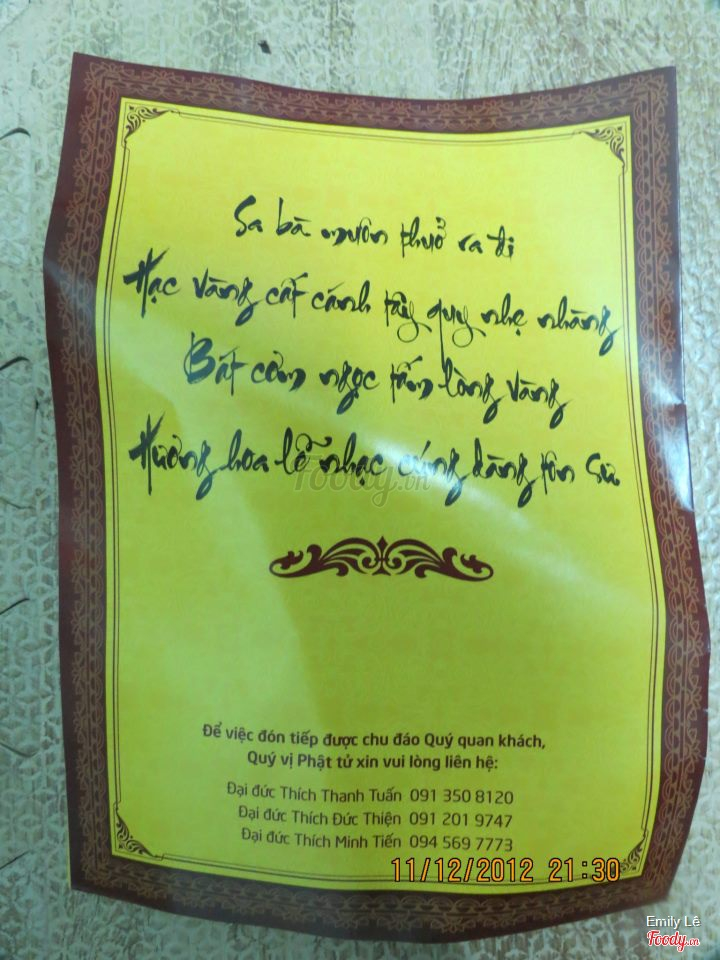 Sa bà muôn thuở ra đi
Hạc vàng cất cánh tây quy nhẹ nhàng
Bát cơm ngọc tấm lòng vàng
Hương hoa lễ nhạc cúng dàng tôn sư
Foody.vn
Để việc đón tiếp được chu đáo Quý quan khách,
Quý vị Phật tử xin vui lòng liên hệ:
Đại đức Thích Thanh Tuấn 091 350 8120
Đại đức Thích Đức Thiện 091 201 9747
Đại đức Thích Minh Tiến 094 569 7773
11/12/2012 21:30
Emily Lê
Foody.vn